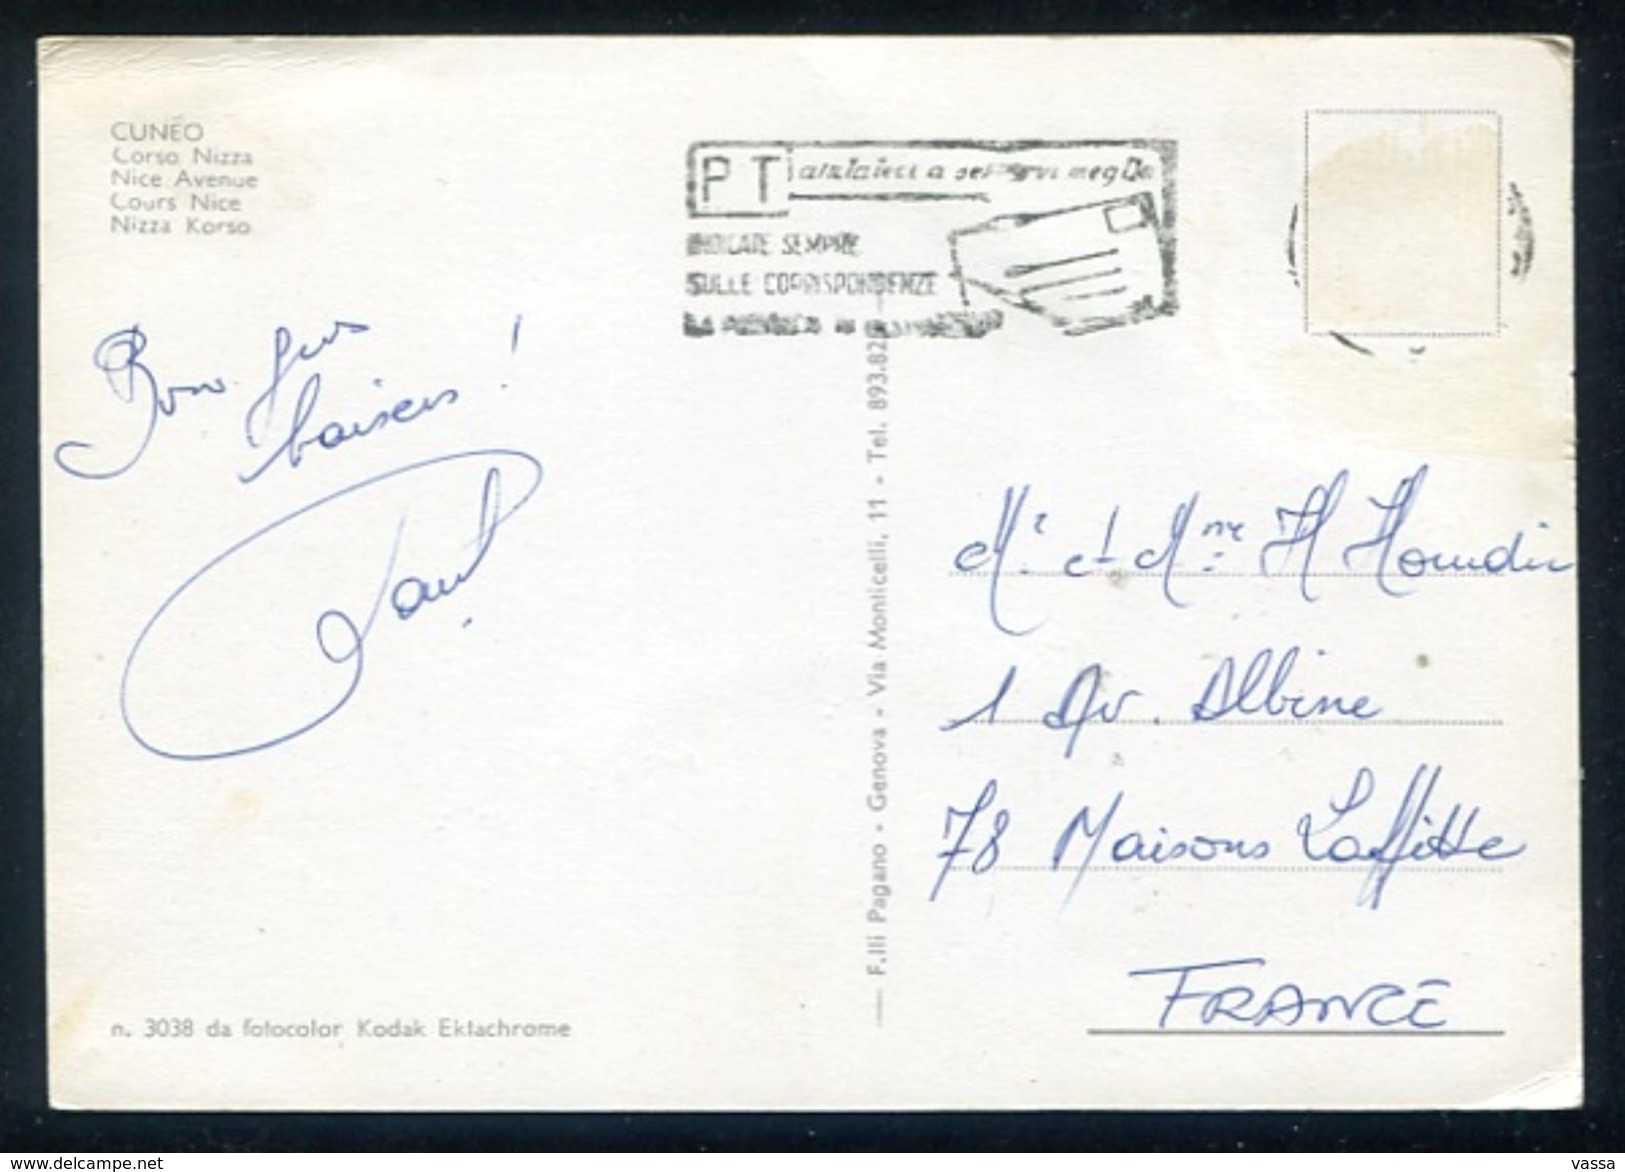 CUNEO
Corso Nizza
Nice Avenue
Cours Nice
Nizza Korso
PT aiutateci a servirvi meglio
INDICATE SEMPRE
SULLE CORRISPONDENZE
LA PROVINCIA DI
Bons gros
baisers !
F.lli Pagano - Genova - Via Monticelli, 11 - Tel. 893.82
Mr. et Mme. H Houdin
1 Av. Albine
78 Maisons Laffitte
FRANCE
n. 3038 da fotocolor Kodak Ektachrome
delcampe.net
vassa